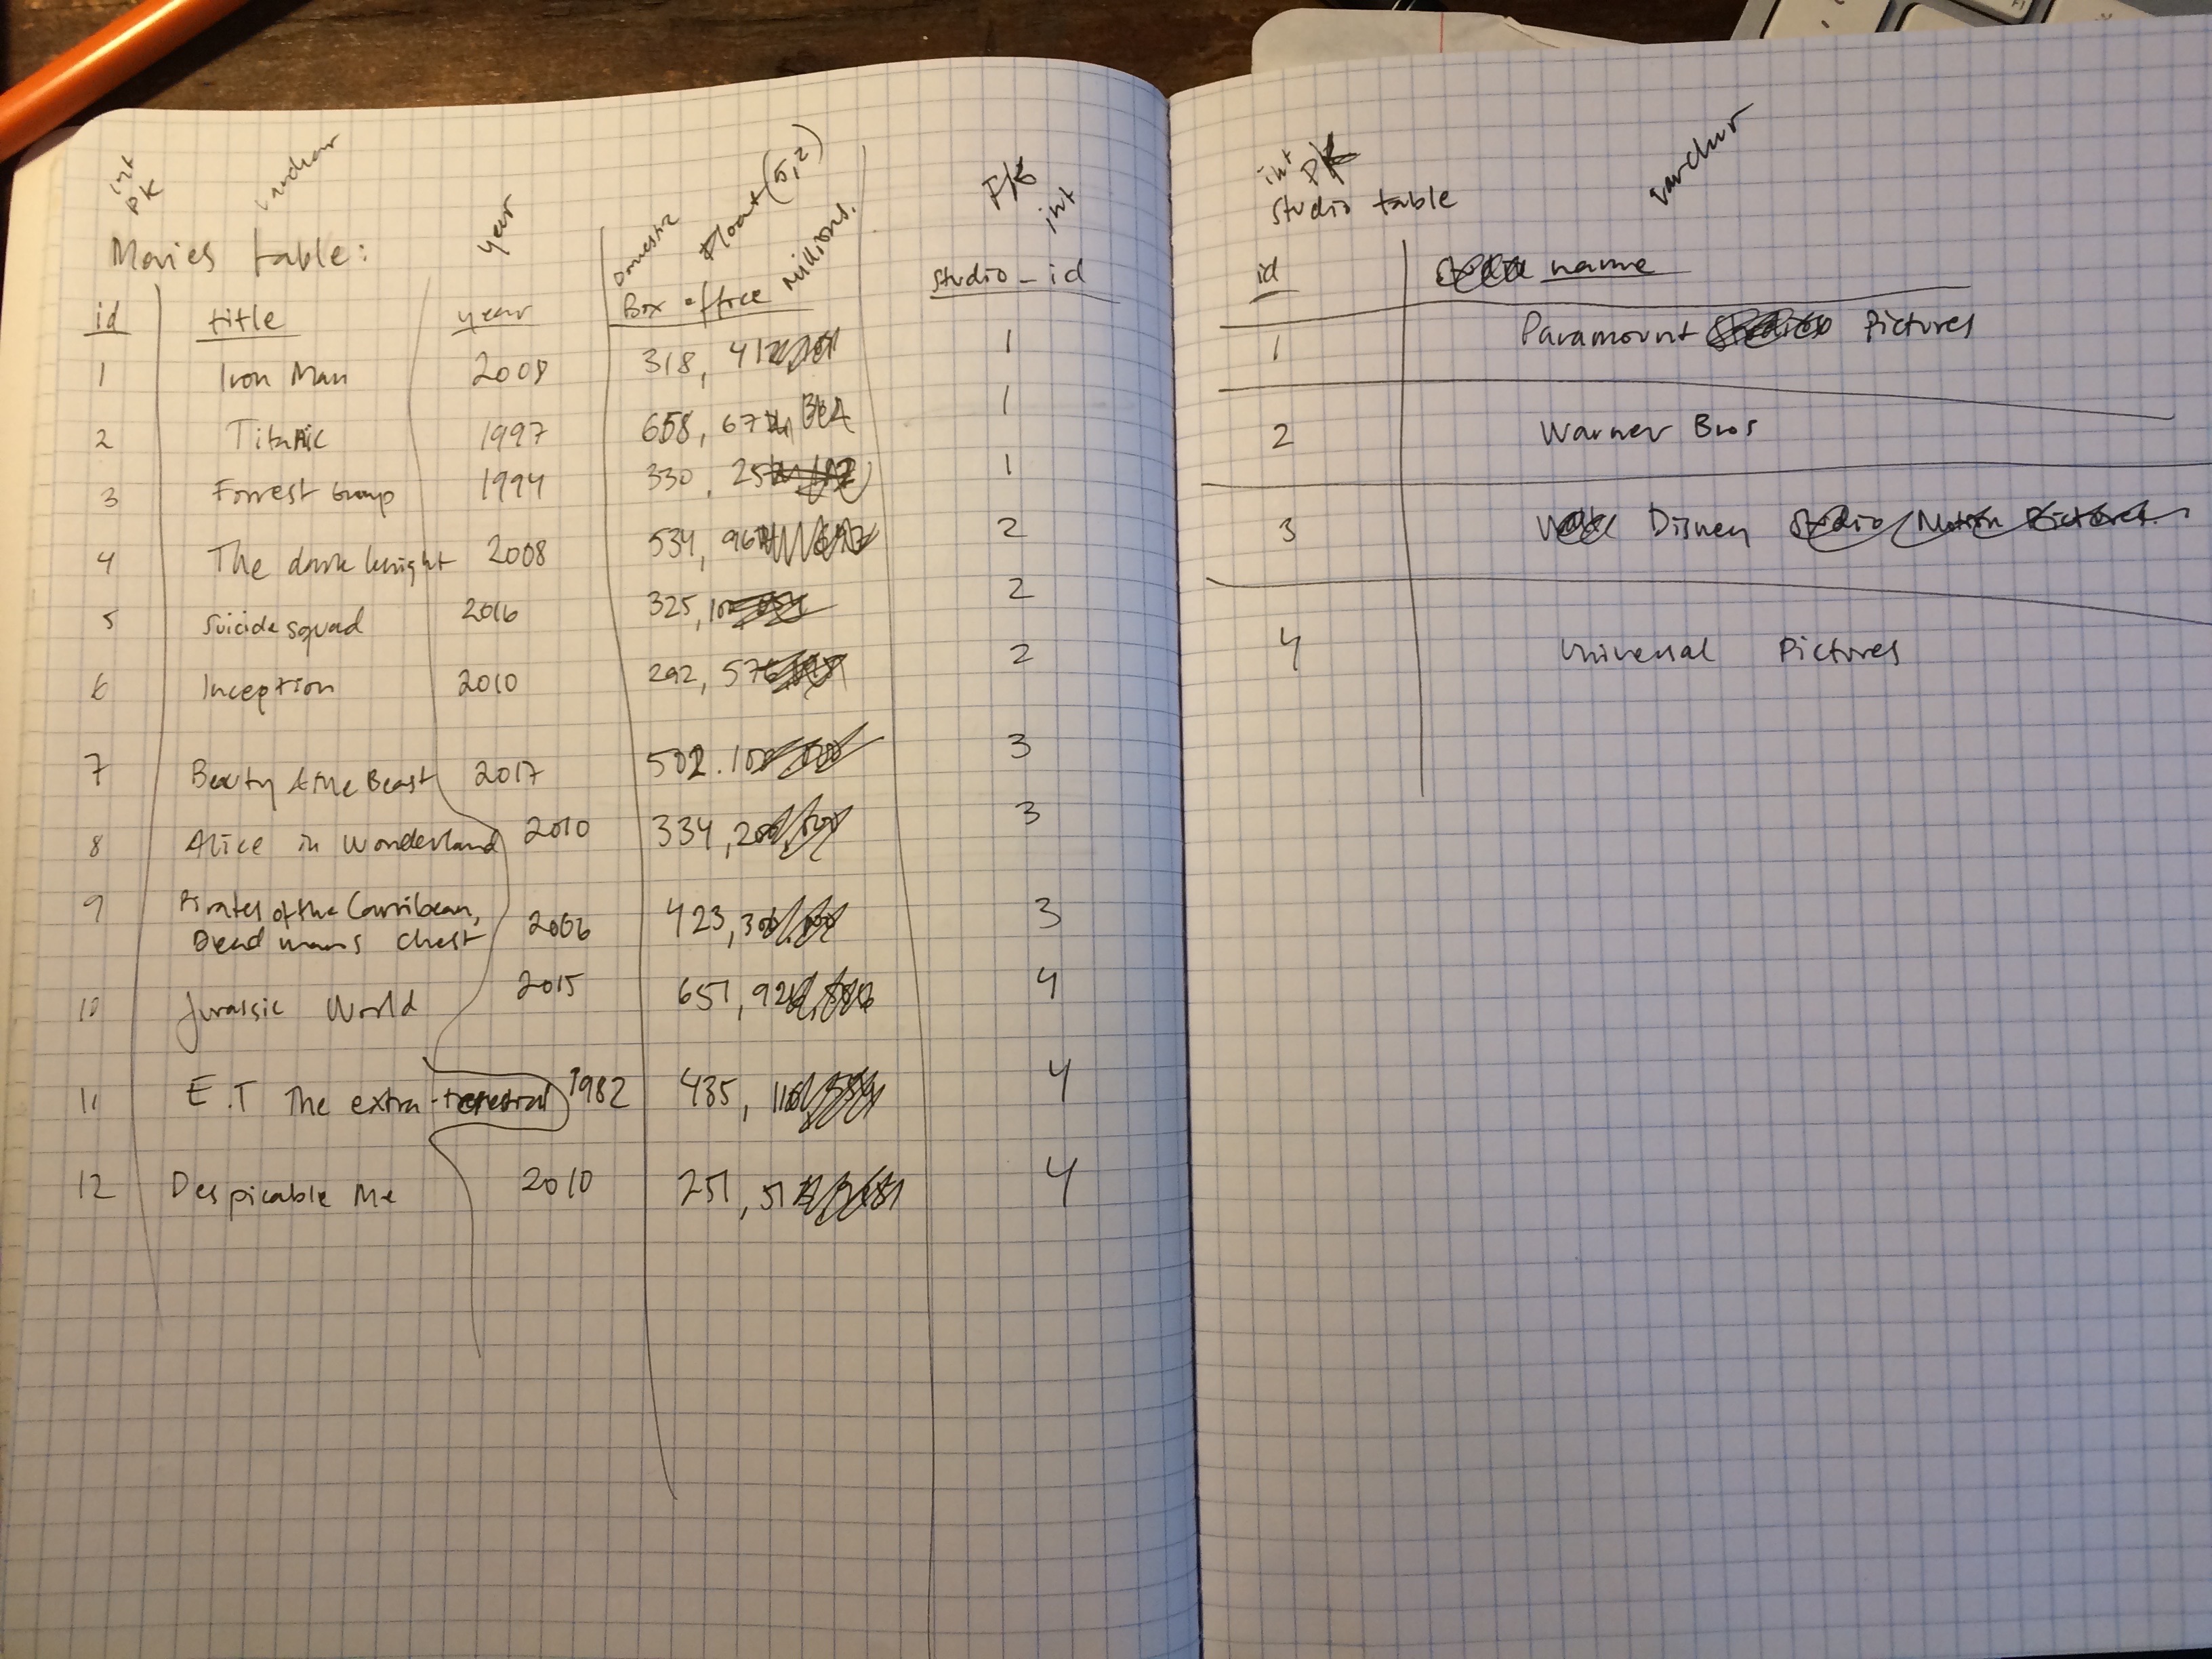 int PK varchar year Domestic float(5,2) Millions. FK int
Movies table:
id title year Box office studio_id
1 Iron Man 2008 318, 41 1
2 Titanic 1997 658, 67 1
3 Forrest Gump 1994 330, 25 1
4 The dark knight 2008 534, 96 2
5 Suicide squad 2016 325, 10 2
6 Inception 2010 292, 57 2
7 Beauty & the Beast 2017 502. 10 3
8 Alice in Wonderland 2010 334, 20 3
9 Pirates of the Carribean,
Dead mans chest 2006 423, 30 3
10 Jurassic World 2015 651, 92 4
11 E.T The extra- 1982 435, 11 4
12 Despicable Me 2010 251, 51 4
int PK varchar
Studio table
id name
1 Paramount Pictures
2 Warner Bros
3 Disney
4 Universal Pictures